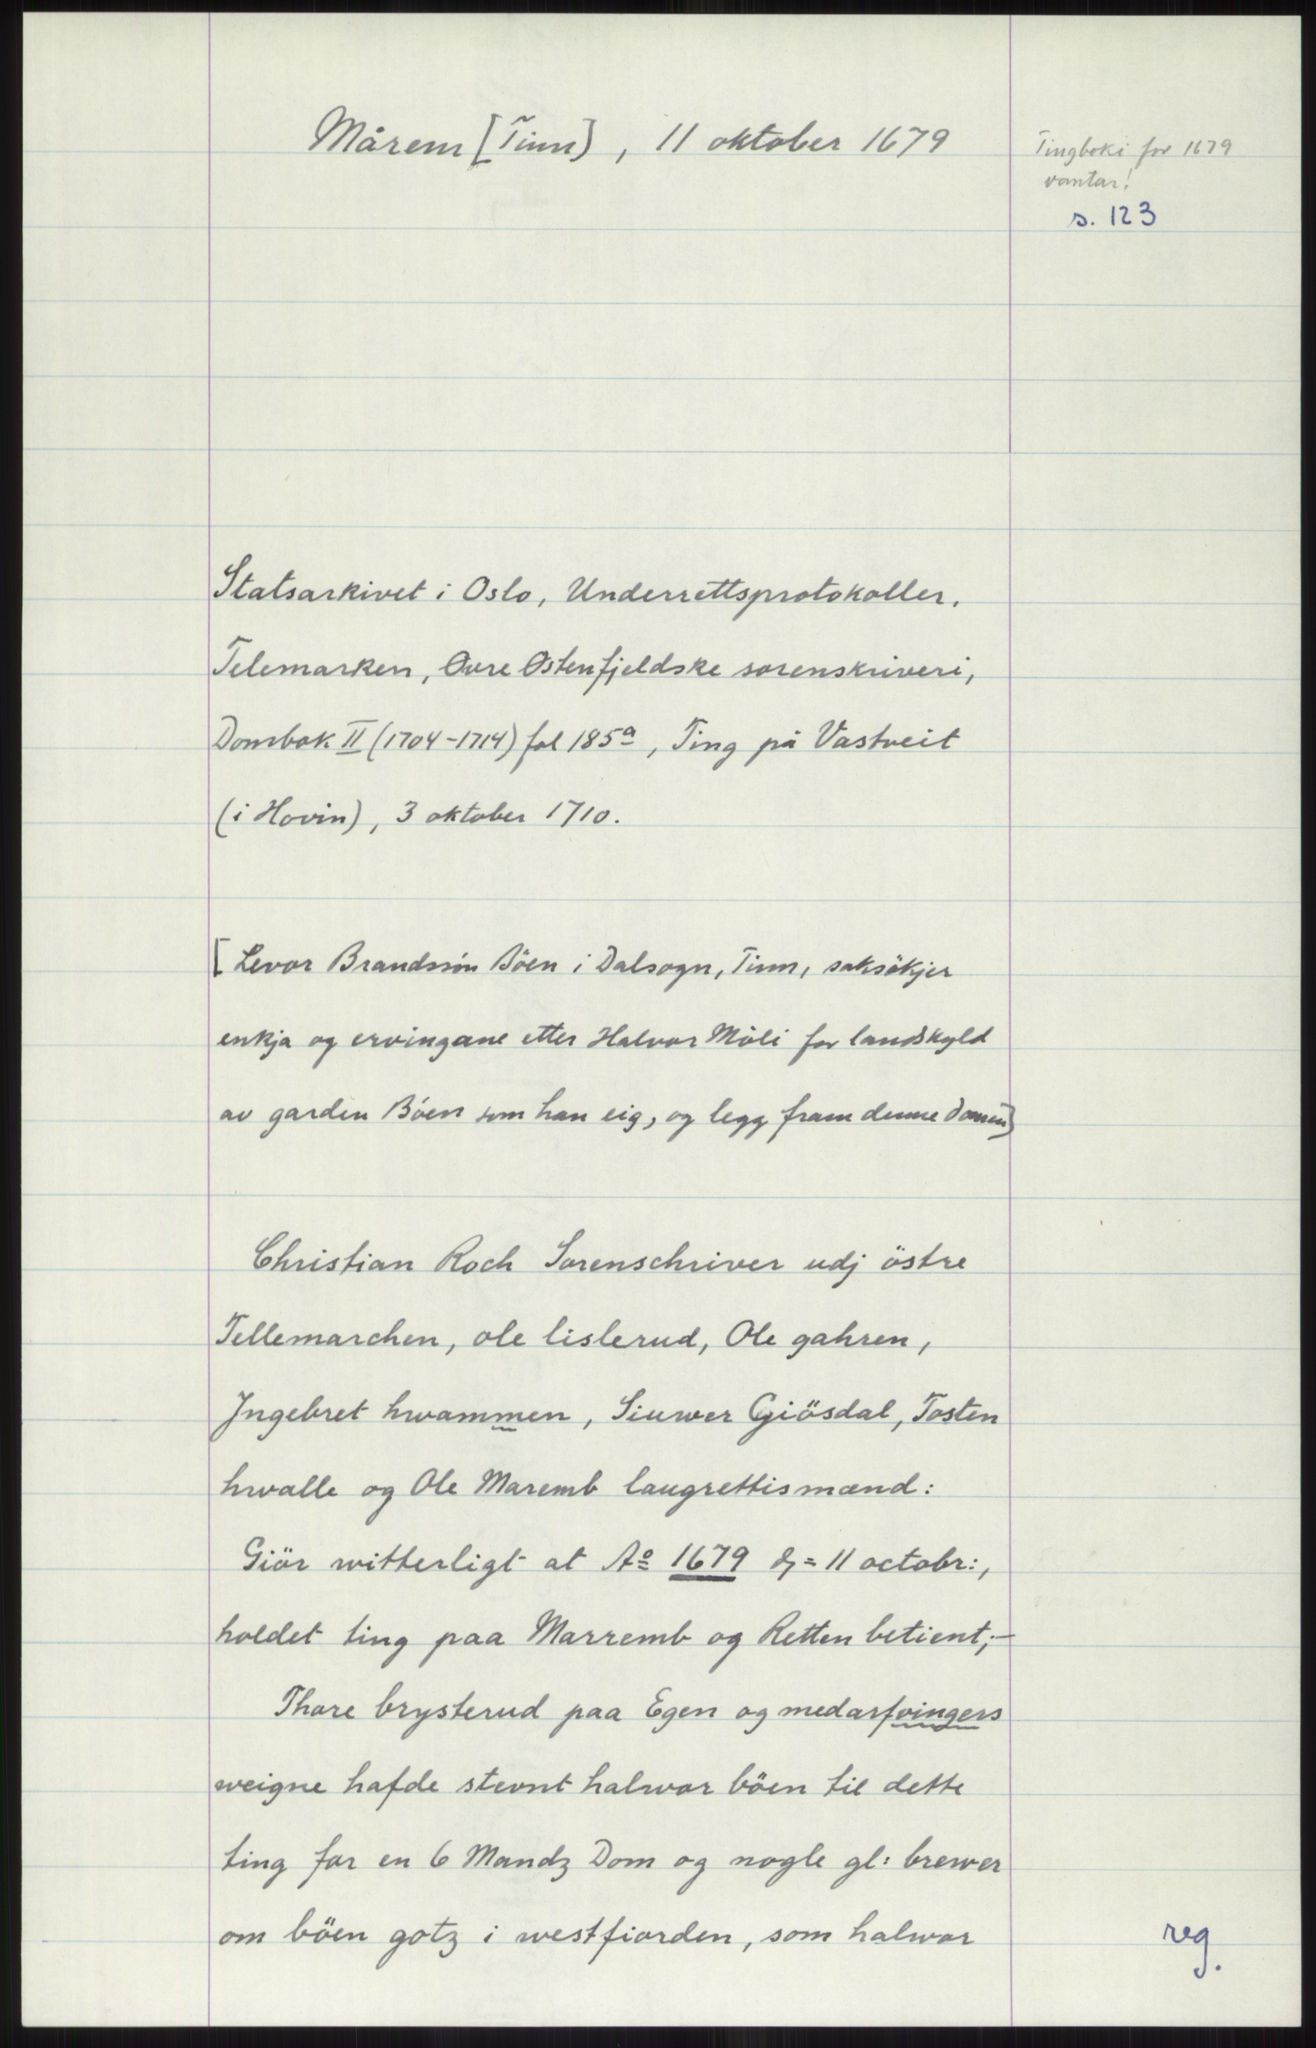 Mårem [Tinn], 11 oktober 1679
Tingboki for 1679
vantar!
s. 123
Statsarkivet i Oslo, Underrettsprotokoller.
Telemarken, Øvre Østenfjeldske sorenskriveri,
Dombok II (1704-1714) fol 185a, Ting på Vastveit
(i Hovin), 3 oktober 1710.
[Levor Brandssön Böen i Dalsogn, Tinn, saksökjer
enkja og ervingane etter Halvor Möli for landskyld
av garden Böen som han eig, og legg fram denne domen]
Christian Roch Sorenschriver udj östre
Tellemarchen, ole lislerud, Ole gahren,
Jngebret hwammen, Siuwer Giösdal, Tosten
hwalle og Ole Maremb laugrettismænd:
Giör witterligt at Ao 1679 d= 11 octobr:,
holdet ting paa Marremb og Retten betient;-
Thore brysterud paa Egen og medarfvingers
weigne hafde stevnt halwor böen til dette
ting for en 6 Mandz Dom og nogle gl: brewer
om böen gotz i westfiorden, som halwor
reg.